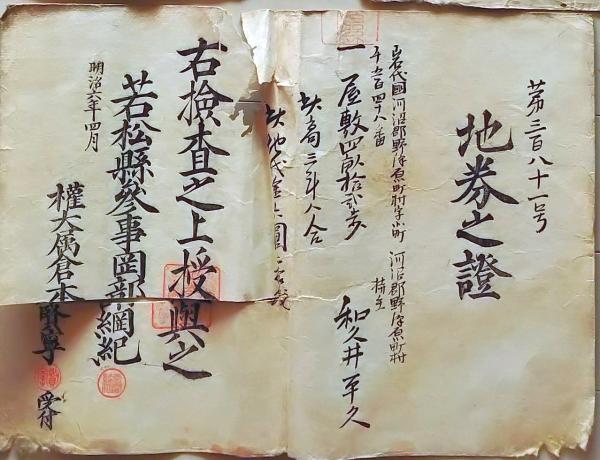 第三百八十一号
地券之證
岩代國河沼郡野沢原町村字小町
河沼郡野沢原町村
持主
和久井平久
千五百四十八番
一屋敷四畝拾弐歩
此高三斗八合
此地代金
右檢査之上授與之
明治六年四月
若松縣參事岡部綱紀
權大属倉本
受付